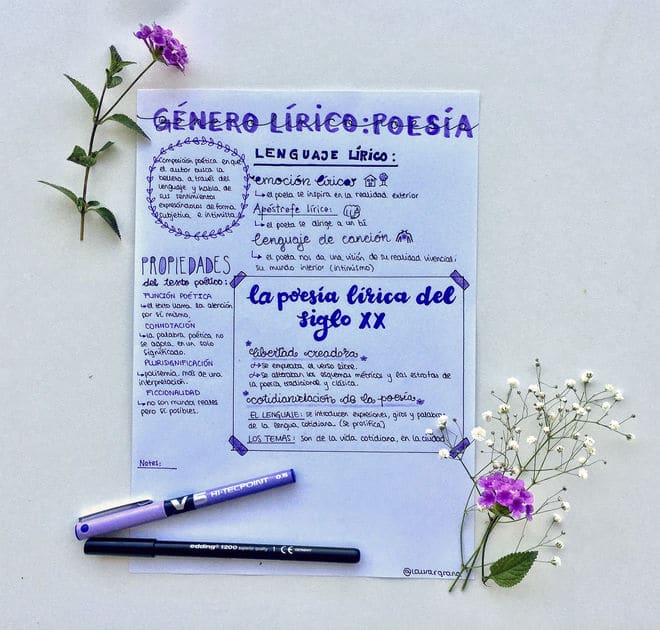 GÉNERO LÍRICO: POESÍA
Composición poética en que
el autor busca la
belleza a través del
lenguaje y habla de
sus sentimientos
expresándolos de forma
subjetiva e intimista.
LENGUAJE LÍRICO:
emoción lírica
↳ el poeta se inspira en la realidad exterior
Apóstrofe lírico:
↳ el poeta se dirige a un tú
lenguaje de canción
↳ el poeta nos da una visión de su realidad vivencial:
su mundo interior (intimismo)
PROPIEDADES
del texto poético:
FUNCIÓN POÉTICA
↳ el texto llama la atención
por sí mismo.
CONNOTACIÓN
↳ la palabra poética no
se agota en un solo
significado.
PLURISIGNIFICACIÓN
↳ polisemia, más de una
interpretación.
FICCIONALIDAD
↳ no son mundos reales
pero sí posibles.
la poesía lírica del
siglo XX
*libertad creadora*
↳ se emplea el verso libre.
↳ se alteran los esquemas métricos y las estrofas de
la poesía tradicional y clásica.
*cotidianización de la poesía*
EL LENGUAJE: se introducen expresiones, giros y palabras
de la lengua cotidiana (se prosifica)
LOS TEMAS: son de la vida cotidiana, en la ciudad
Notes:
V5 HI-TECPOINT 0.5
edding 1200 superior quality CE